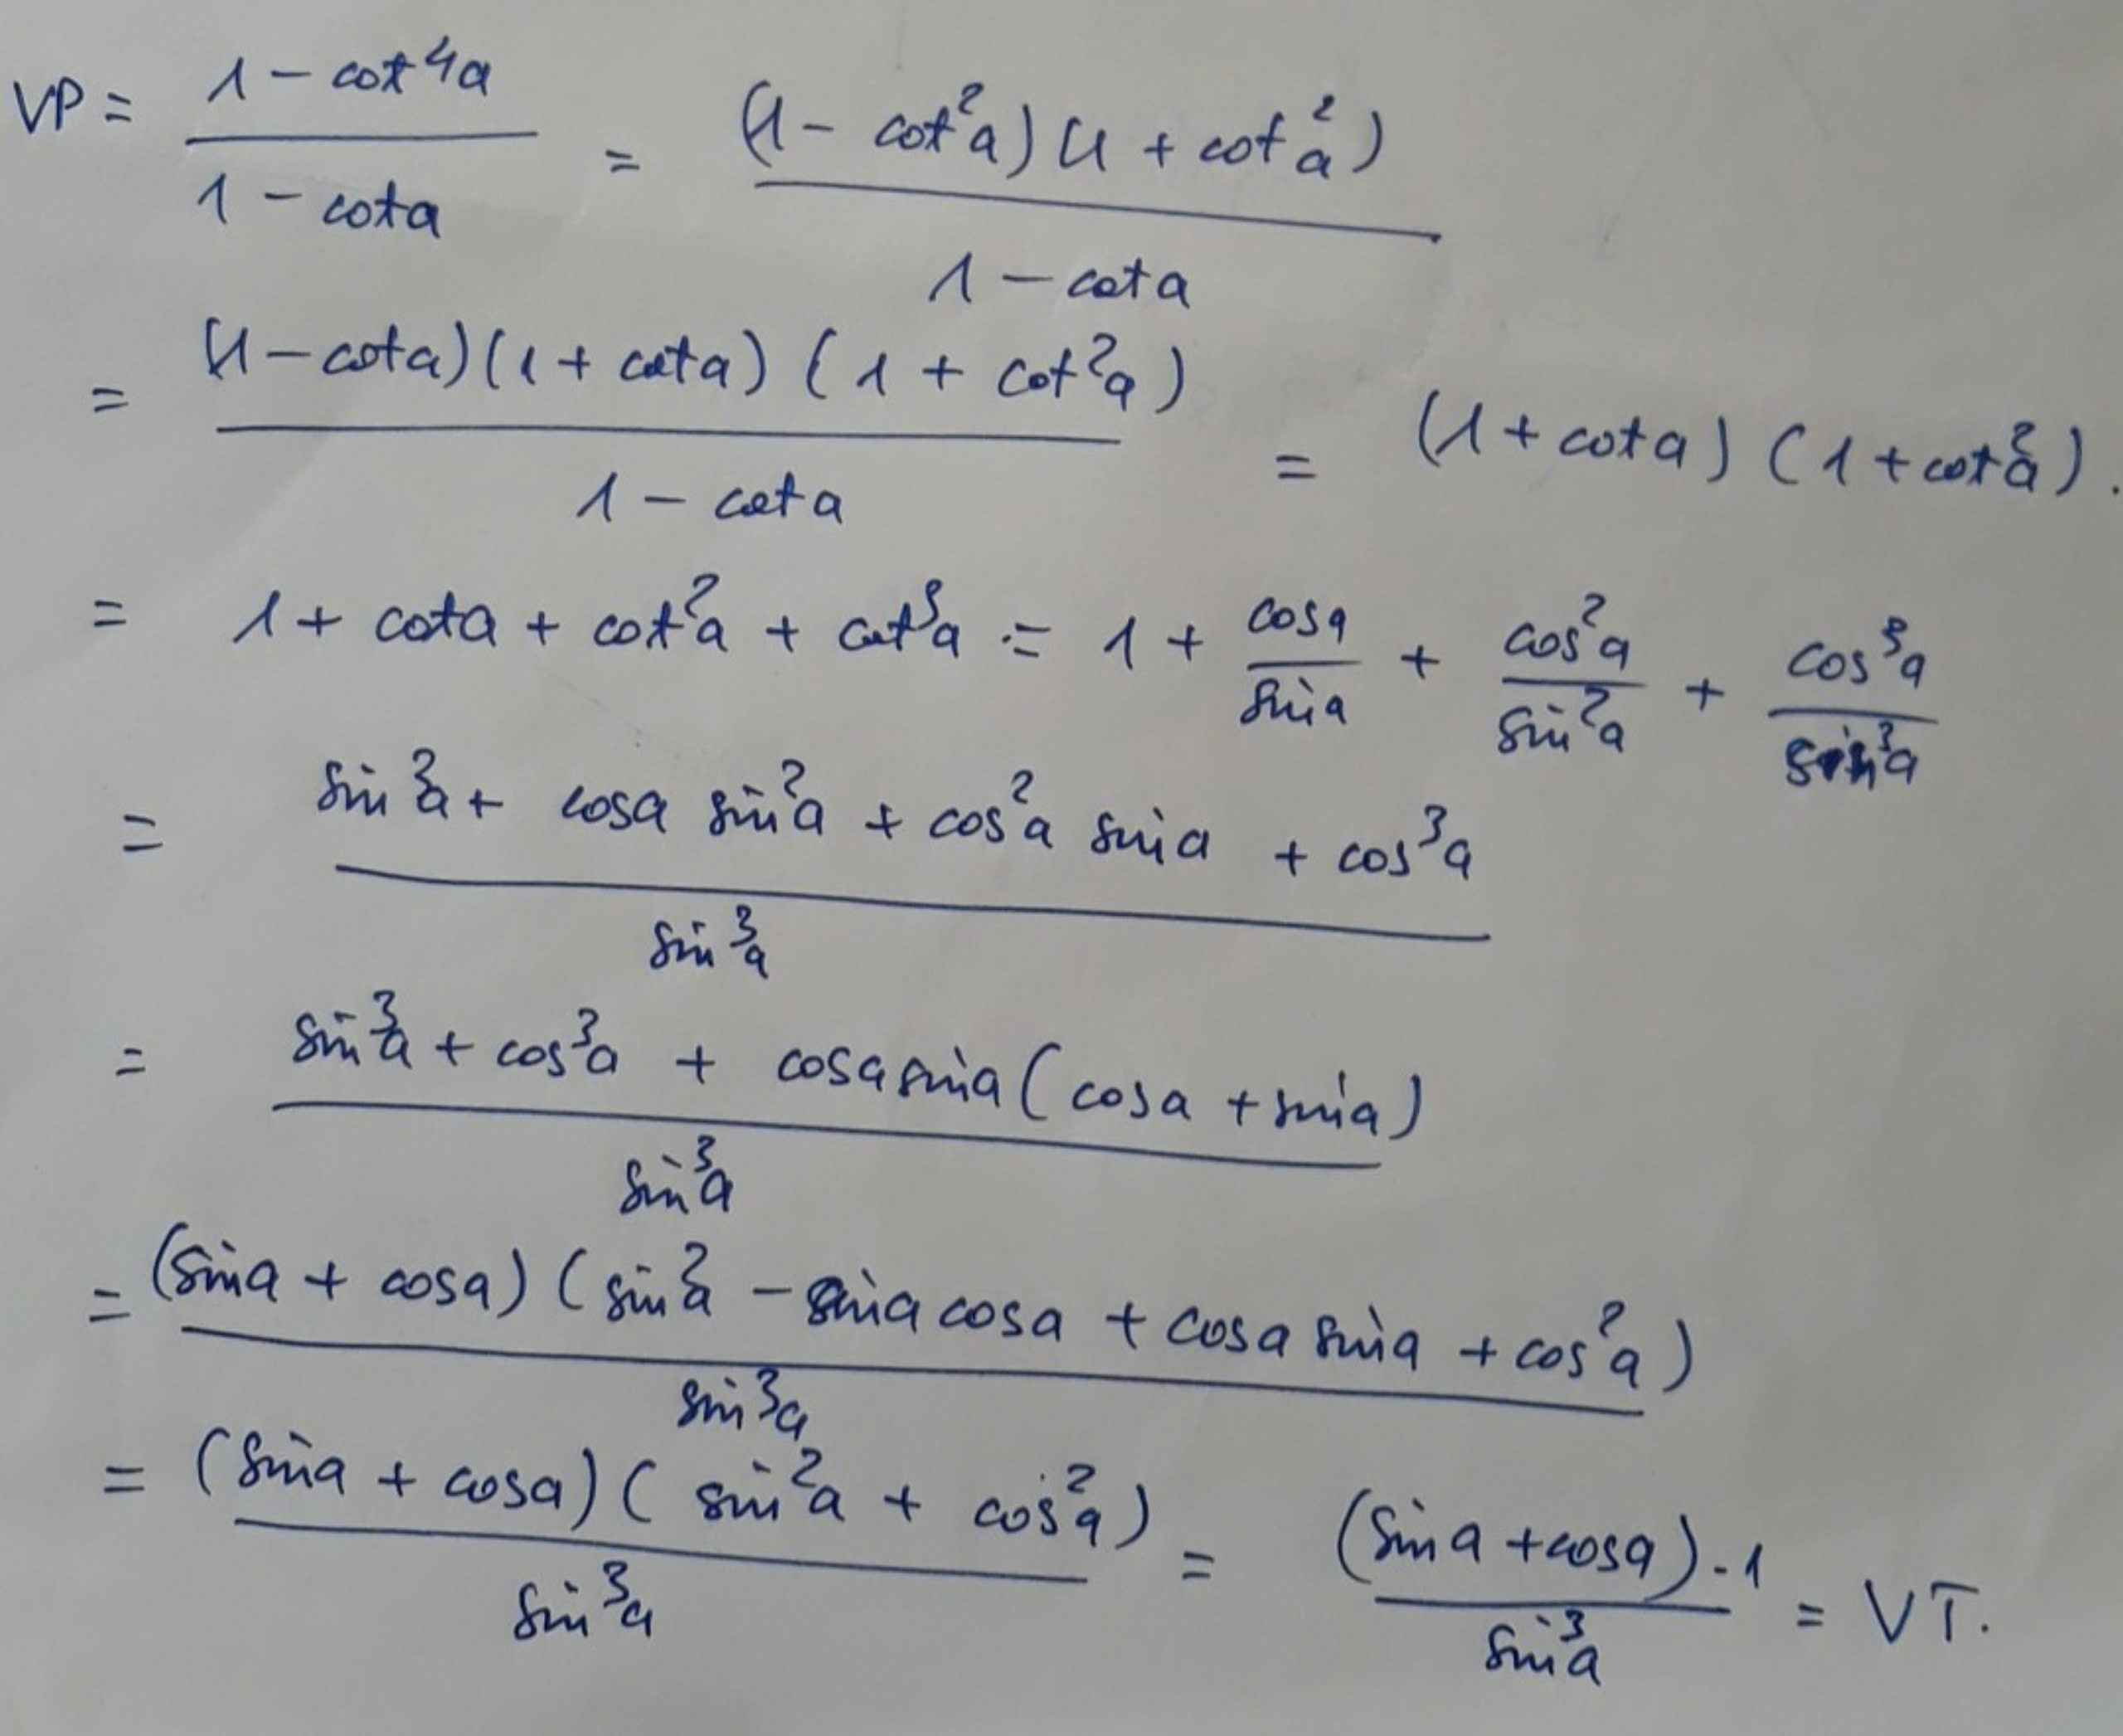 VP = (1 - cot⁴a)/(1 - cota) = ((1 - cot²a)(1 + cot²a))/(1 - cota)
= ((1 - cota)(1 + cota)(1 + cot²a))/(1 - cota) = (1 + cota)(1 + cot²a).
= 1 + cota + cot²a + cot³a = 1 + cosa/sina + cos²a/sin²a + cos³a/sin³a
= (sin³a + cosa sin²a + cos²a sina + cos³a)/sin³a
= (sin³a + cos³a + cosa sina(cosa + sina))/sin³a
= ((sina + cosa)(sin²a - sina cosa + cosa sina + cos²a))/sin³a
= ((sina + cosa)(sin²a + cos²a))/sin³a = ((sina + cosa).1)/sin³a = VT.